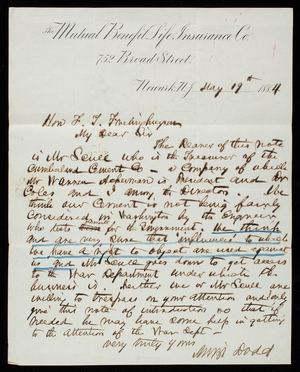 The Mutual Benefit Life Insurance Co
752 Broad Street
Newark N.J. May 19th 1884
Hon F. T. Frelinghuysen
My Dear Sir
The Bearer of this note
is Mr who is the Treasurer of the
Cumberland Cement Co - a Company of which
Mr Warren Ackerman is President and Dr
Coles and I among the Directors. We
think our Cement is not being fairly
Considered in Washington by the Engineer
who tests cement for the Government. We think
and are very sure that influences to which
we have a right to object are used against
us and Mr goes down to get access
to the War Department under which the
business is. Neither we or Mr are
willing to trespass on your attention and only
give this note of introduction so that if
needed he may have some help in getting
to the attention of the War Dept -
very truly yours
Amzi Dodd